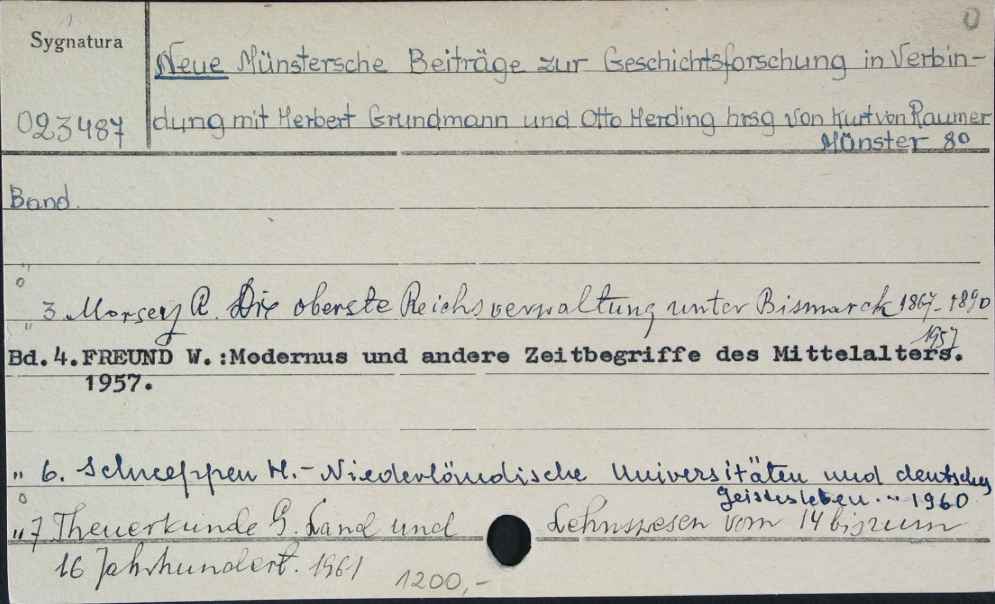 0
Sygnatura
Neue Münstersche Beiträge zur Geschichtsforschung in Verbin-
023487
dung mit Herbert Grundmann und Otto Herding hrsg von Kurt von Raumer
Münster 8o
Band.
"
o
3 Morsey R. Die oberste Reichsverwaltung unter Bismarck 1867-1890
"
1957
Bd.4.FREUND W.:Modernus und andere Zeitbegriffe des Mittelalters.
1957.
" 6. Schneppen H.- Niederländische Universitäten und deutsches
Geistesleben. - 1960
o
" 7 Theuerkunde G. Land und Lehnswesen vom 14 bis zum
16 Jahrhundert. 1961
1200,-